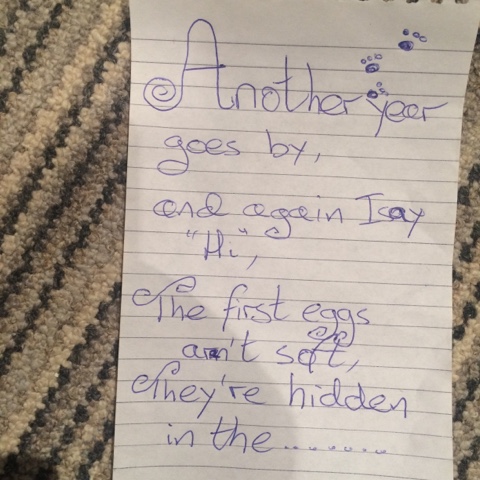 Another year
goes by,
and again I say
"Hi",
The first eggs
ain't soft,
They're hidden
in the........